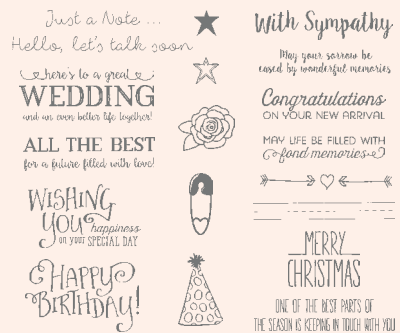 Just a Note ...
Hello, let's talk soon
here's to a great
WEDDING
and an even better life together!
ALL THE BEST
for a future filled with love!
WISHING
YOU happiness
on your SPECIAL DAY
HAPPY
BIRTHDAY!
With Sympathy
May your sorrow be
eased by wonderful memories
Congratulations
ON YOUR NEW ARRIVAL
MAY LIFE BE FILLED WITH
fond memories
MERRY
CHRISTMAS
ONE OF THE BEST PARTS OF
THE SEASON IS KEEPING IN TOUCH WITH YOU